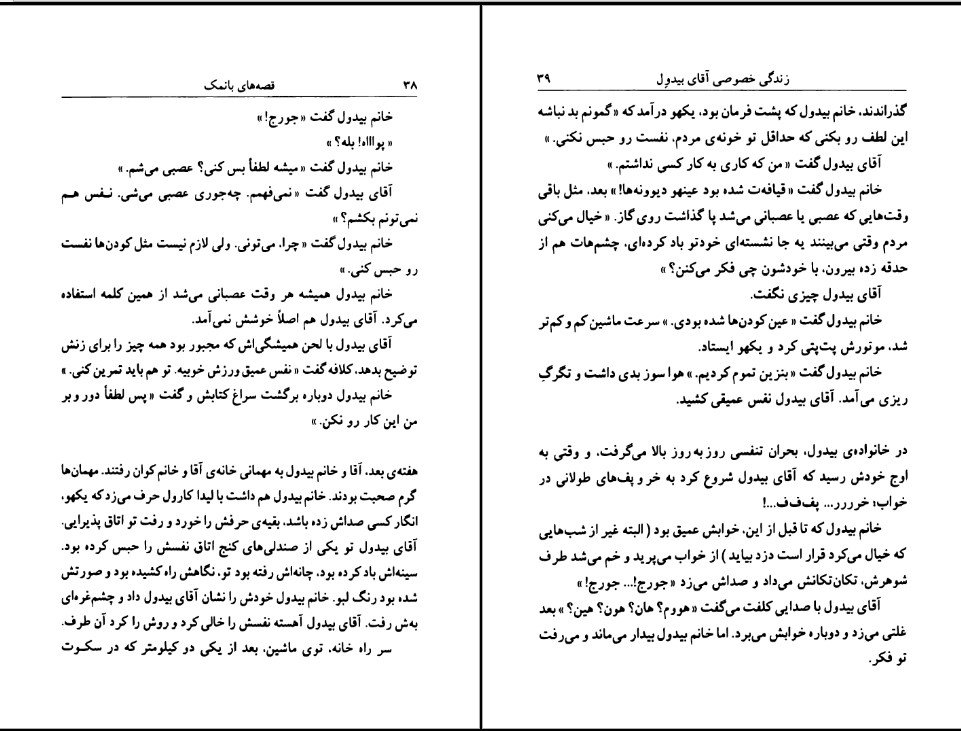 ۳۸ قصه‌های بانمک
خانم بیدول گفت «جورج!»
« پوااااه! بله؟ »
خانم بیدول گفت « میشه لطفأ بس کنی؟ عصبی می‌شم. »
آقای بیدول گفت « نمی‌فهمم. چه‌جوری عصبی می‌شی. نـفـس هـم
نمی‌تونم بکشم؟ »
خانم بیدول گفت « چرا، می‌تونی. ولی لازم نیست مثل کودن‌ها نفست
رو حبس کنی. »
خانم بیدول همیشه هر وقت عصبانی می‌شد از همین کلمه استفاده
می‌کرد. آقای بیدول هم اصلاً خوشش نمی‌آمد.
آقای بیدول با لحن همیشگی‌اش که مجبور بود همه چیز را برای زنش
توضیح بدهد، کلافه گفت « نفس عمیق ورزش خوبیه. تو هم باید تمرین کنی. »
خانم بیدول دوباره برگشت سراغ کتابش و گفت « پس لطفأ دور و بر
من این کار رو نکن. »
هفته‌ی بعد، آقا و خانم بیدول به مهمانی خانه‌ی آقا و خانم کوان رفتند. مهمان‌ها
گرم صحبت بودند. خانم بیدول هم داشت با لیدا کارول حرف می‌زد که یکهو،
انگار کسی صداش زده باشد، بقیه‌ی حرفش را خورد و رفت تو اتاق پذیرایی.
آقای بیدول تو یکی از صندلی‌های کنج اتاق نفسش را حبس کرده بود.
سینه‌اش باد کرده بود، چانه‌اش رفته بود تو، نگاهش راه کشیده بود و صورتش
شده بود رنگ لبو. خانم بیدول خودش را نشان آقای بیدول داد و چشم‌غره‌ای
به‌ش رفت. آقای بیدول آهسته نفسش را خالی کرد و روش را کرد آن طرف.
سر راه خانه، توی ماشین، بعد از یکی دو کیلومتر که در سکوت
زندگی خصوصی آقای بیدوِل ۳۹
گذراندند، خانم بیدول که پشت فرمان بود، یکهو درآمد که « گمونم بد نباشه
این لطف رو بکنی که حداقل تو خونه‌ی مردم، نفست رو حبس نکنی. »
آقای بیدول گفت « من که کاری به کار کسی نداشتم. »
خانم بیدول گفت « قیافه‌ت شده بود عینهو دیوونه‌ها! » بعد، مثل باقی
وقت‌هایی که عصبی یا عصبانی می‌شد پا گذاشت روی گاز. « خیال می‌کنی
مردم وقتی می‌بینند یه جا نشسته‌ای خودتو باد کرده‌ای، چشم‌هات هم از
حدقه زده بیرون، با خودشون چی فکر می‌کنن؟ »
آقای بیدول چیزی نگفت.
خانم بیدول گفت « عین کودن‌ها شده بودی. » سرعت ماشین کم و کم‌تر
شد، موتورش پت‌پتی کرد و یکهو ایستاد.
خانم بیدول گفت « بنزین تموم کردیم. » هوا سوز بدی داشت و تگرگِ
ریزی می‌آمد. آقای بیدول نفس عمیقی کشید.
در خانواده‌ی بیدول، بحران تنفسی روز به روز بالا می‌گرفت، و وقتی به
اوج خودش رسید که آقای بیدول شروع کرد به خر و پف‌های طولانی در
خواب؛ خررررر... پف‌ف‌ف...!
خانم بیدول که تا قبل از این، خوابش عمیق بود ( البته غیر از شب‌هایی
که خیال می‌کرد قرار است دزد بیاید ) از خواب می‌پرید و خم می‌شد طرف
شوهرش، تکان‌تکانش می‌داد و صداش می‌زد «جورج!... جورج! »
آقای بیدول با صدایی کلفت می‌گفت « هووم؟ هان؟ هون؟ هین؟ » بعد
غلتی می‌زد و دوباره خوابش می‌برد. اما خانم بیدول بیدار می‌ماند و می‌رفت
تو فکر.